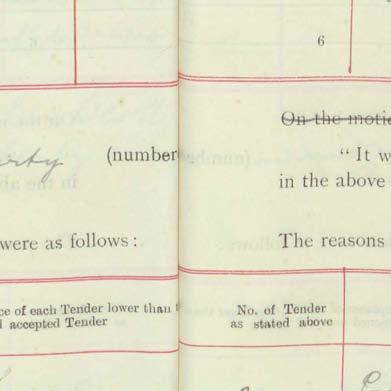 6
(number
were as follows:
ce of each Tender lower than
accepted Tender
6
On the motio
"It w
in the above
The reasons
No. of Tender
as stated above